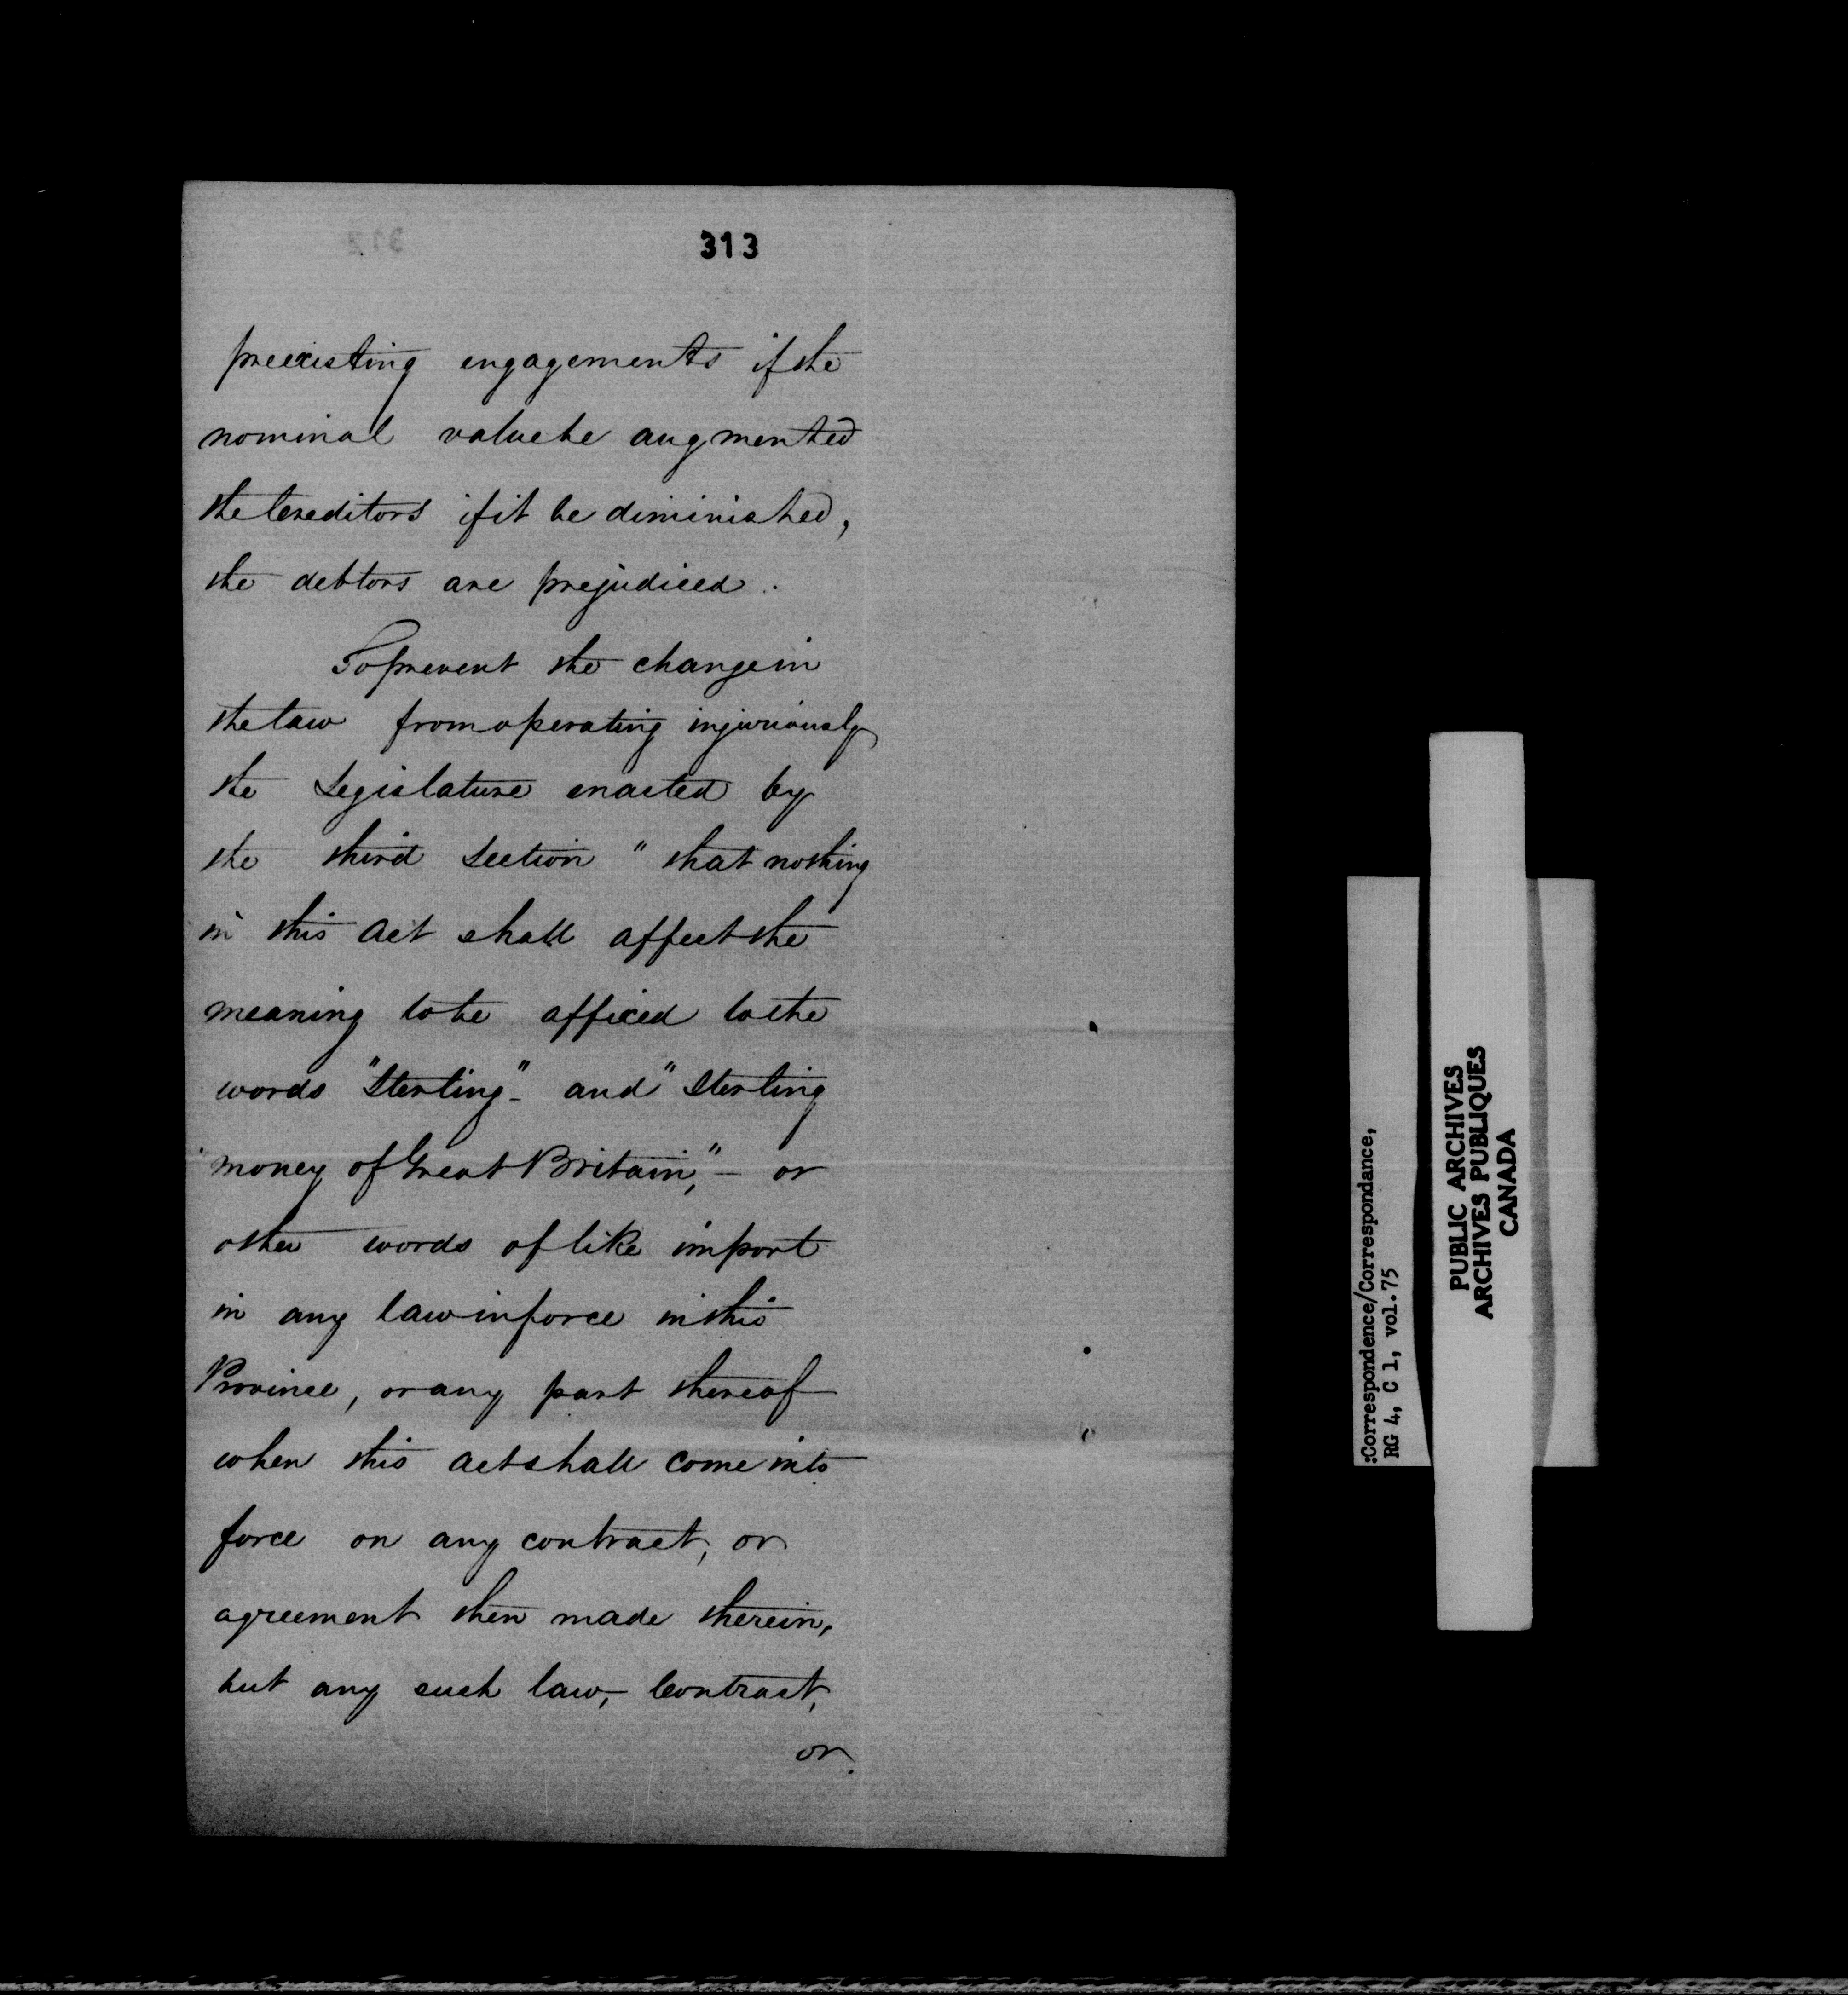 313
preexisting engagements if the
nominal value be augmented
the Creditors if it be diminished,
the debtors are prejudiced.
To prevent the change in
the law from operating injuriously
the Legislature enacted by
the third Section "that nothing
in this Act shall affect the
meaning to be affixed to the
words "Sterling"- and "Sterling
money of Great Britain,"- or
other words of like import
in any law in force in this
Province, or any part thereof
when this act shall come into
force on any contract, or
agreement then made therein,
but any such law, Contract,
or
:Correspondence/Correspondance,
RG 4, C 1, vol.75
PUBLIC ARCHIVES
ARCHIVES PUBLIQUES
CANADA